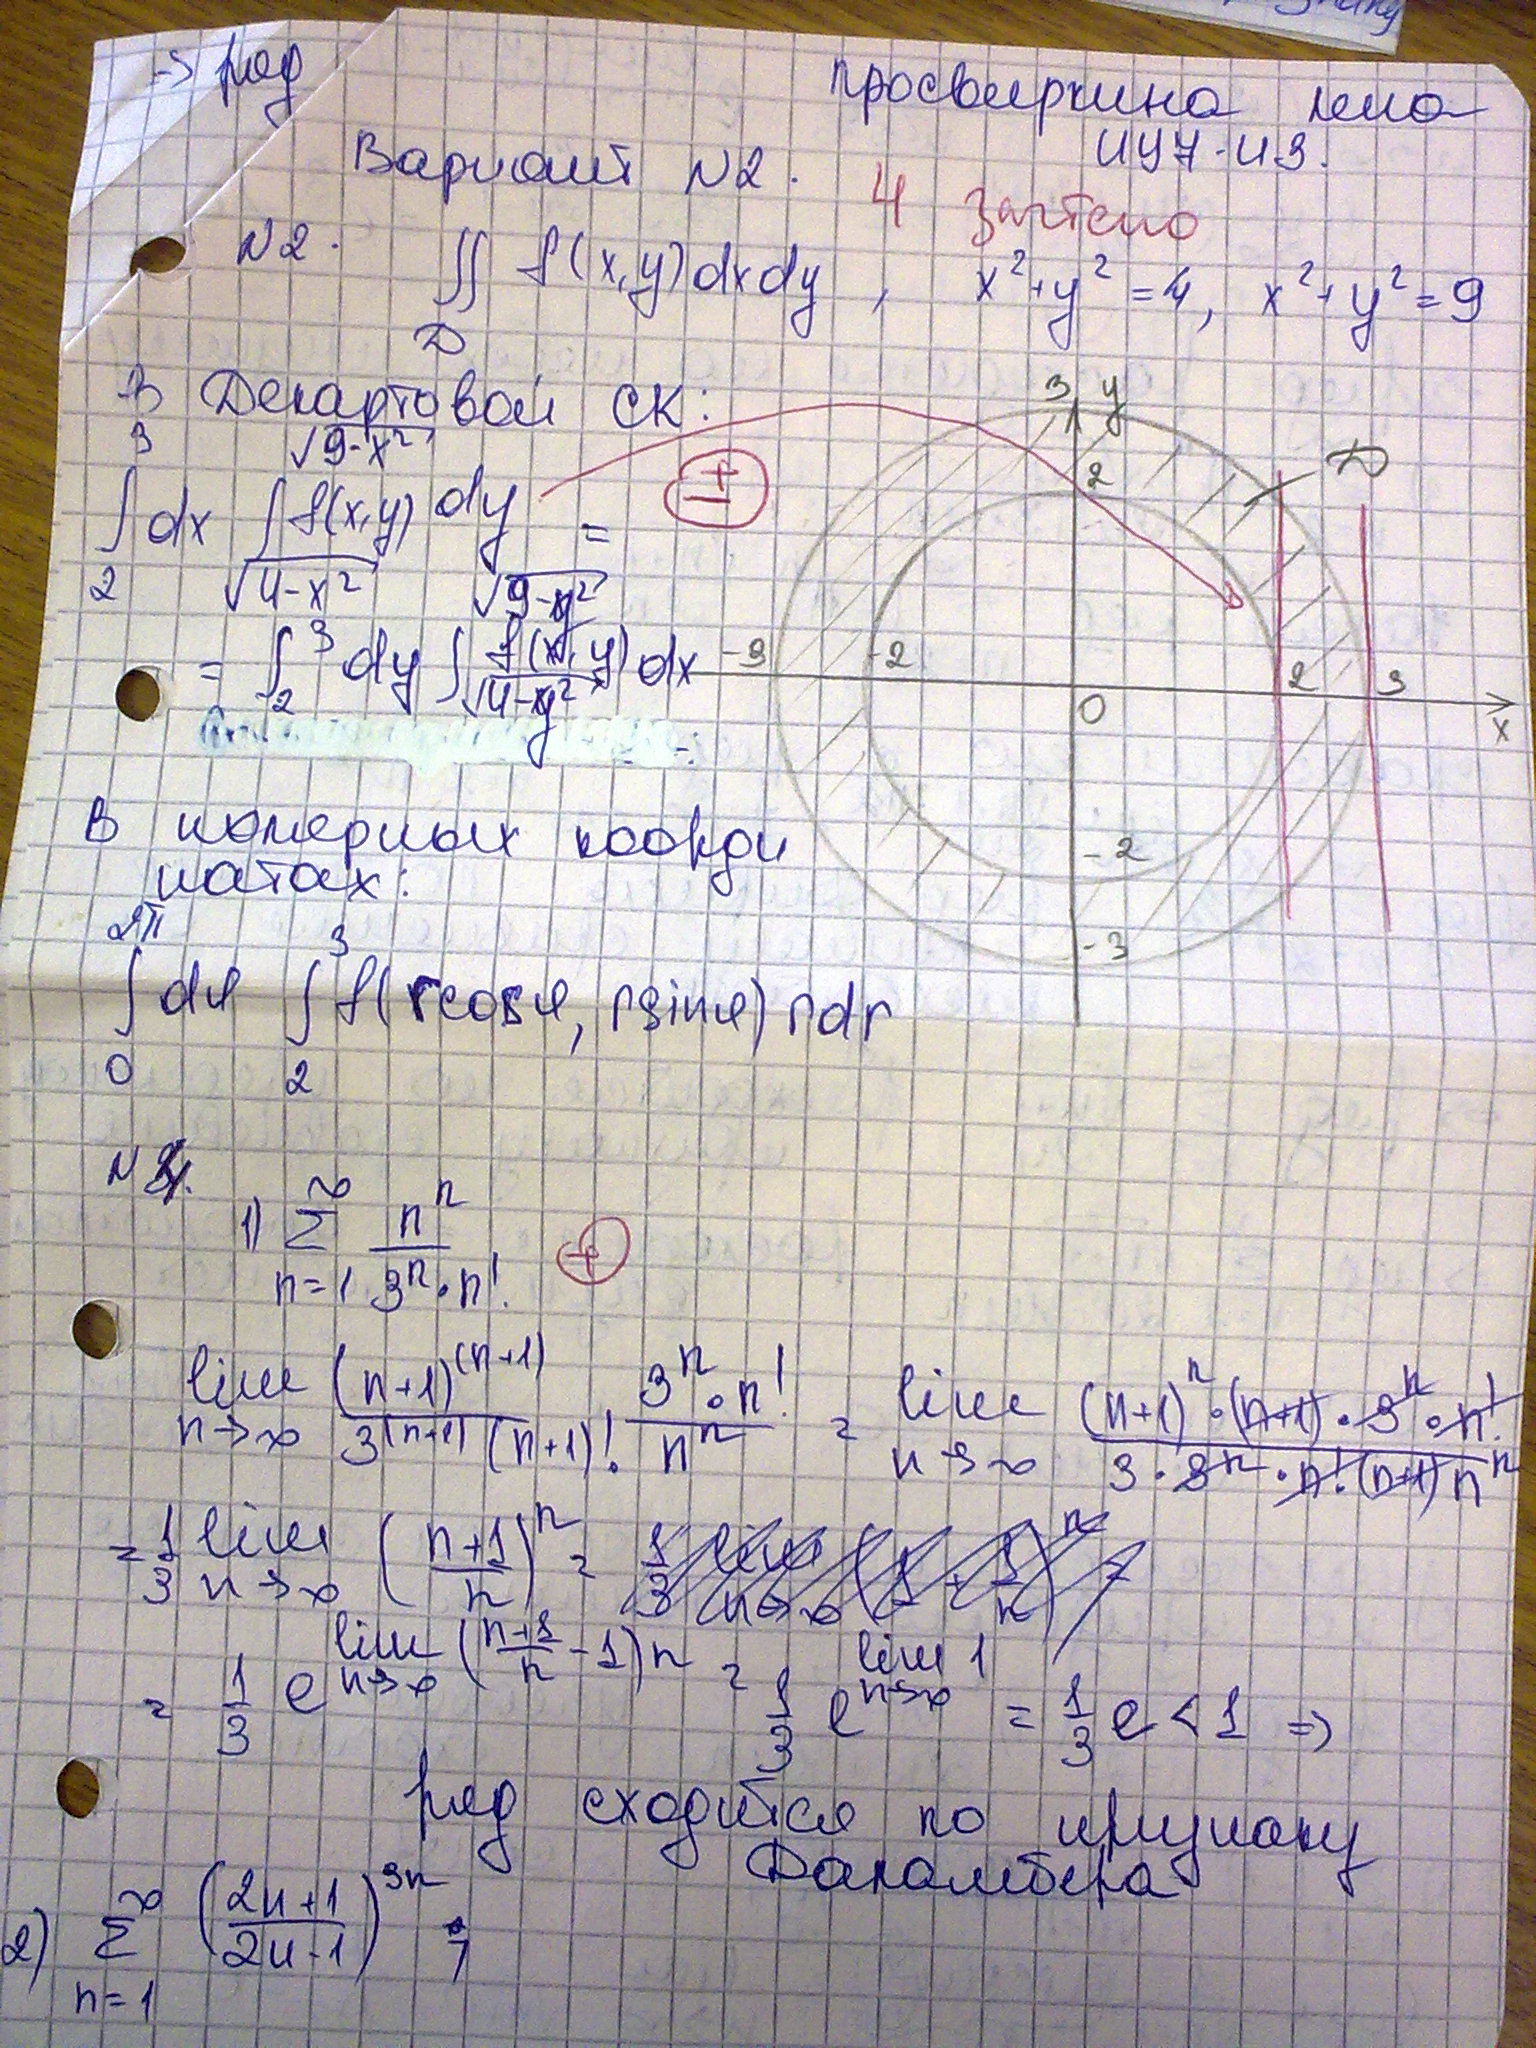 -> ряд
Просвиркина Лена
ИУ7-43.
Вариант N2.
4 зачтено
N2. ∬ f(x,y)dxdy, x²+y²=4, x²+y²=9
D
В Декартовой СК:
3 √9-x²
∫dx ∫f(x,y) dy =
2 √4-x²
√9-y²
= ∫₂³ dy ∫ f(x,y) dx
√4-y²
±
3 y
2
D
-3 -2 0 2 3 x
-2
-3
В полярных коорди
натах:
2π 3
∫dφ ∫f(rcosφ, rsinφ)rdr
0 2
N4.
1) ∞ Σ n=1 nⁿ / 3ⁿ·n!
+
lim n→∞ (n+1)^(n+1) / 3^(n+1) (n+1)! · 3ⁿ·n! / nⁿ = lim n→∞ (n+1)ⁿ·(n+1)·3ⁿ·n! / 3·3ⁿ·n!·(n+1)nⁿ
= 1/3 lim n→∞ ((n+1)/n)ⁿ = 1/3 lim n→∞ (1+1/n)ⁿ =
= 1/3 e^(lim n→∞ ((n+1)/n - 1)n) = 1/3 e^(lim n→∞ 1) = 1/3 e < 1 =>
ряд сходится по признаку
Даламбера
2) ∞ Σ n=1 ((2n+1)/(2n-1))^3n ;